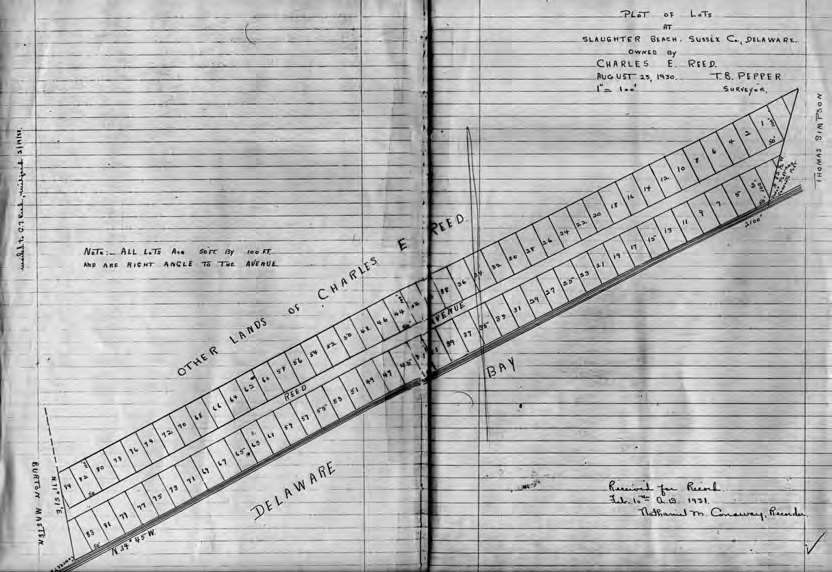 PLOT OF LOTS
AT
SLAUGHTER BEACH. SUSSEX CO., DELAWARE.
OWNED BY
CHARLES E. REED.
AUGUST 25, 1930. T.B. PEPPER
1" = 100' SURVEYOR.
THOMAS SIMPSON
NOTE:- ALL LOTS ARE 50 FT BY 100 FT.
AND ARE RIGHT ANGLE TO THE AVENUE.
OTHER LANDS OF CHARLES E. REED.
1 2 4 6 8 10 12 14 16 18 20 22 24 26 28 30 32 34 36 38
42 44 46 48 50 52 54 56 58 60 62 64 66 68 70 72 74 76 78 80 82
REED AVENUE
5 7 9 11 13 15 17 19 21 23 25 27 29 31 33 35 37 39 41
45 47 49 51 53 55 57 59 61 63 65 67 69 71 73 75 77 79 81 83
2100'
DELAWARE BAY
BURTON MASTEN
N 11° 51' E
N 34° 45' W.
Received for Record
Feb. 10th A.D. 1931.
Nathaniel M. Conaway, Recorder